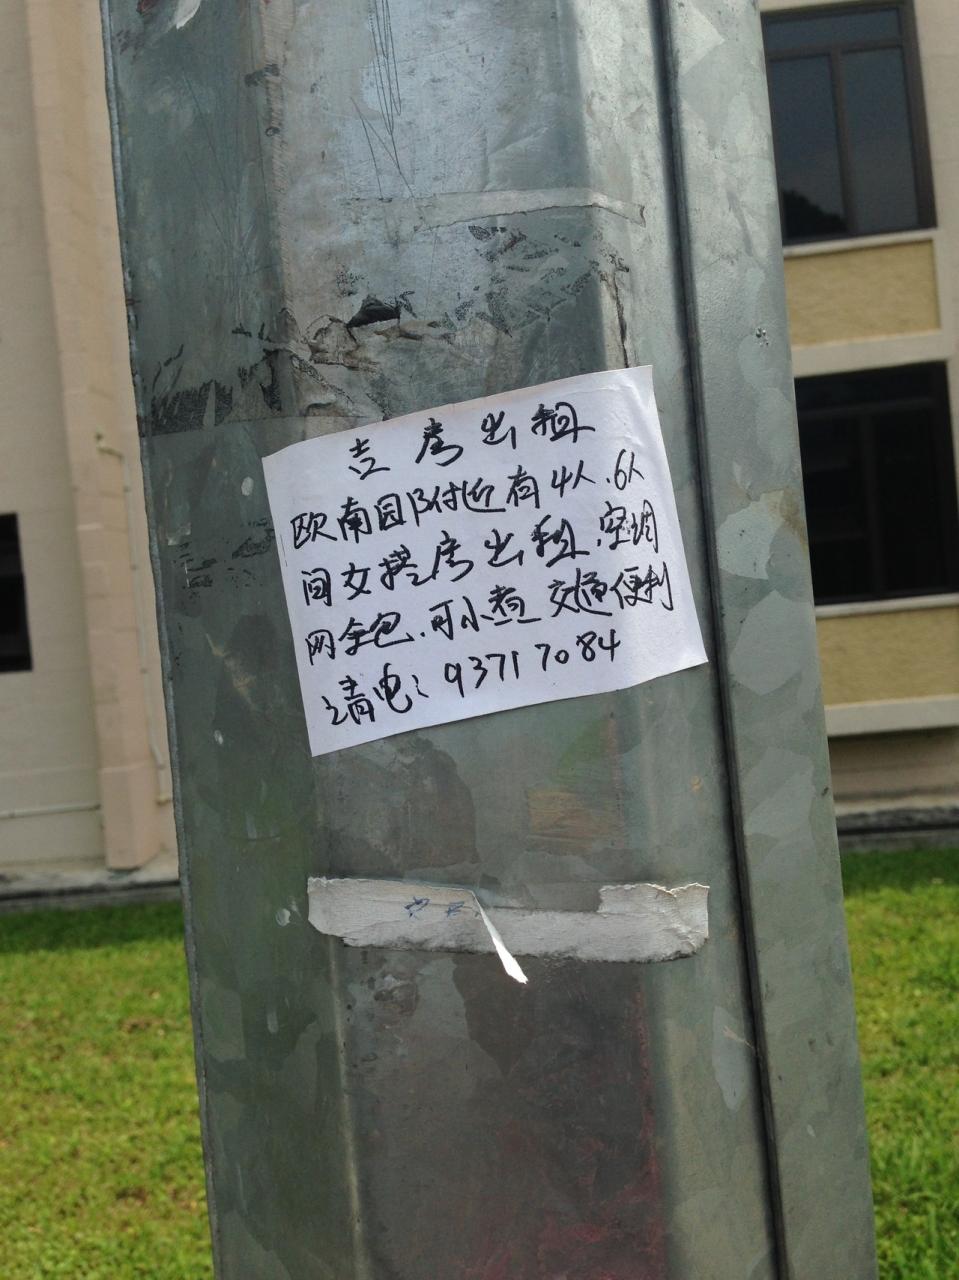 吉房出租
欧南园附近有4人.6人
间女搭房出租.空调
网全包.可小煮 交通便利
请电: 93717084